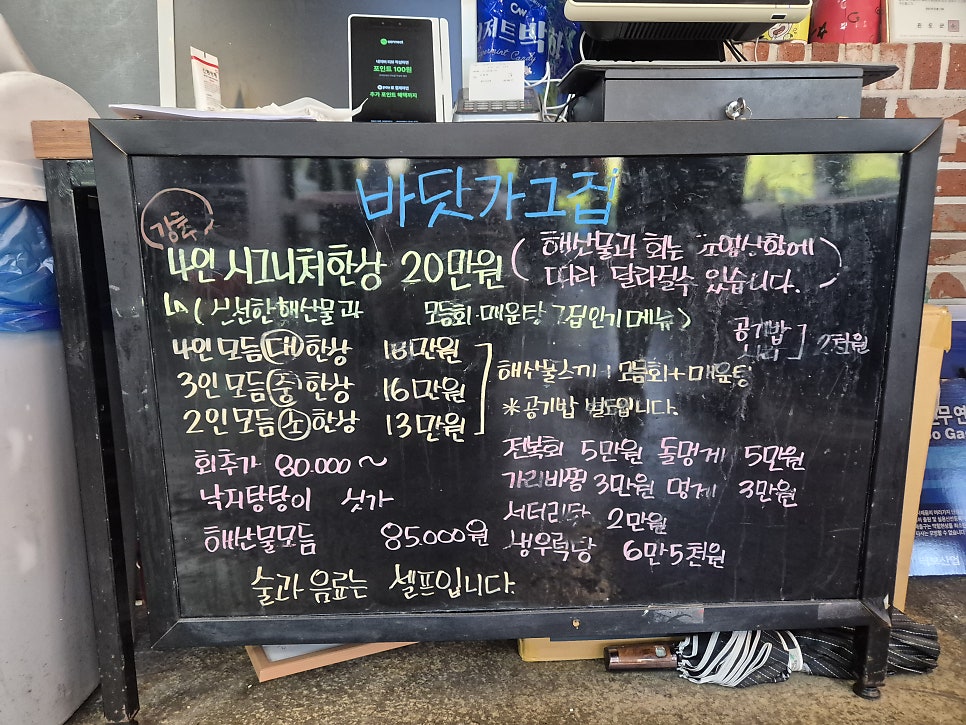 포인트 100원
박하
Peppermint Candy
바닷가그집
강추
4인 시그니처한상 20만원 ( 해산물과 회는 조업상황에
따라 달라질수 있습니다. )
( 신선한 해산물과 모듬회 매운탕 그집인기메뉴 )
공기밥
사리 ] 2천원
4인 모듬 대 한상 18만원
3인 모듬 중 한상 16만원
2인 모듬 소 한상 13만원
해산물스끼 + 모듬회 + 매운탕
* 공기밥 별도입니다.
회추가 80.000 ~
낙지탕탕이 싯가
해산물모듬 85.000원
전복회 5만원 돌멍게 5만원
가리비찜 3만원 멍게 3만원
서더리탕 2만원
생우럭탕 6만5천원
술과 음료는 셀프입니다.